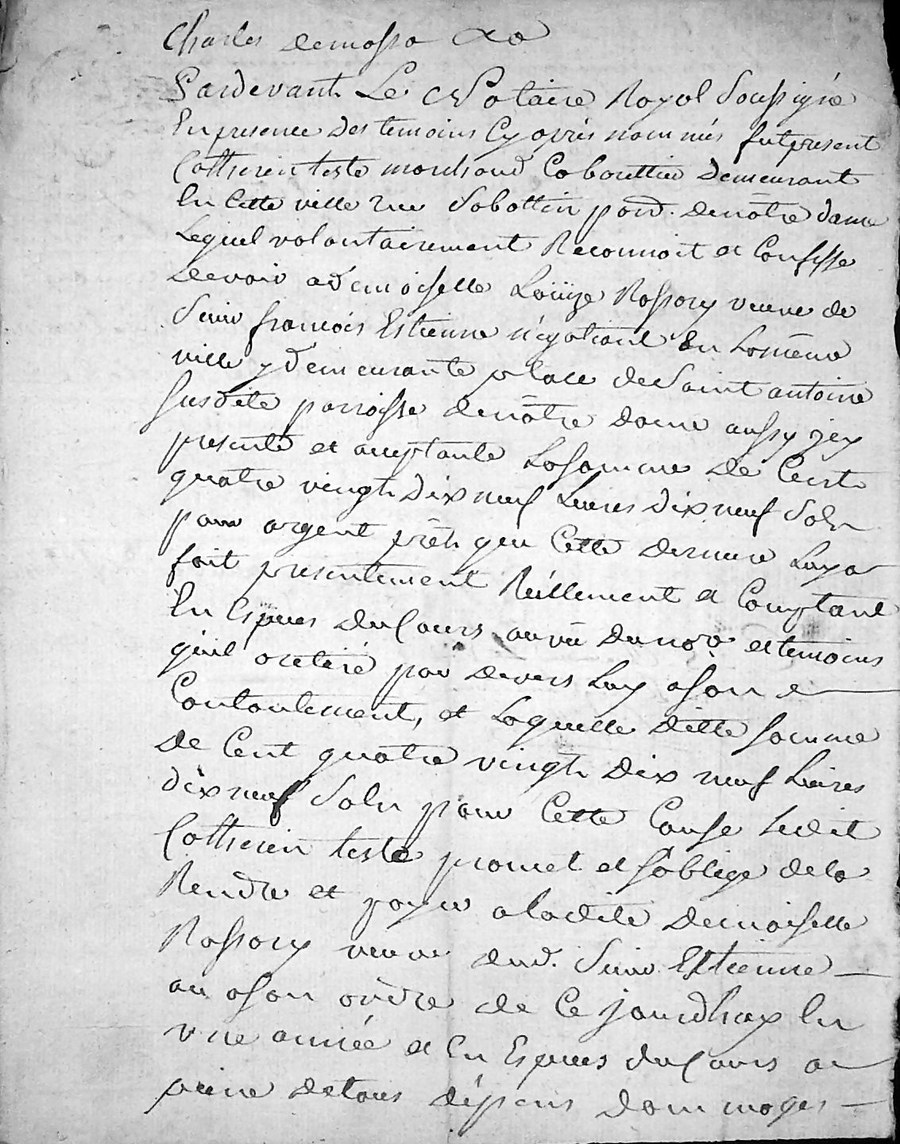 Charles demossa
Pardevant Le Notaire Royal Soussigné
En presence des temoins Cy après nommés fut present
Catherin teste marchand Cabarettier Demeurant
En Cette ville rue Sabottin parr. denôtre dame
Lequel volontairement Reconnoit et Confesse
Devoir a demoiselle Loüize Rossary veuve de
Sieur francois Estienne négotiant En La même
ville y demeurante place de Saint antoine
Susdite parroisse denôtre dame aussy jcy
presente et acceptante La somme de Cent
quatre vingt Dix neuf Livres Dix neuf Sols
pour argent prêté que Cette derniere Luy a
fait presentement Réellement et Comptant
En Especes du Cours au vû du no.re et temoins
qu'il a retiré par devers Luy a Son
Contentement, et Laquelle ditte somme
de Cent quatre vingt Dix neuf Livres
dix neuf Sols pour Cette Cause Ledit
Catherin teste promet et s'oblige de la
Rendre et payer a ladite demoiselle
Rossary veuve dud. Sieur Estienne
ou a son ordre de Ce jourdhuy En
une année et En Especes du Cours a
peine de tous dépens dommages